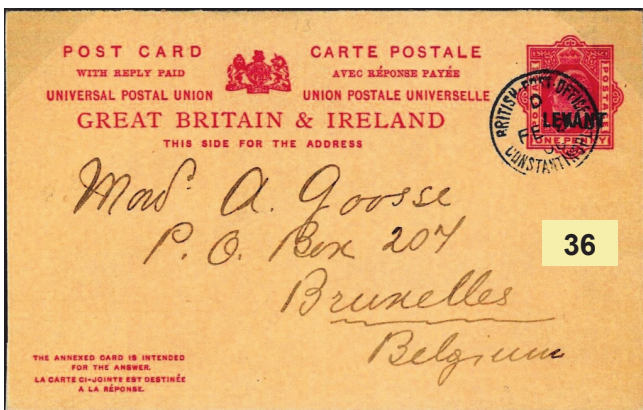 POST CARD
WITH REPLY PAID
UNIVERSAL POSTAL UNION
CARTE POSTALE
AVEC RÉPONSE PAYÉE
UNION POSTALE UNIVERSELLE
GREAT BRITAIN & IRELAND
THIS SIDE FOR THE ADDRESS
POSTAGE
LEVANT
ONE PENNY
BRITISH POST OFFICE
D
FE
CONSTANTINOPLE
A. Goosse
P. O. Box 204
Bruxelles
Belgium
36
THE ANNEXED CARD IS INTENDED
FOR THE ANSWER.
LA CARTE CI-JOINTE EST DESTINÉE
A LA RÉPONSE.